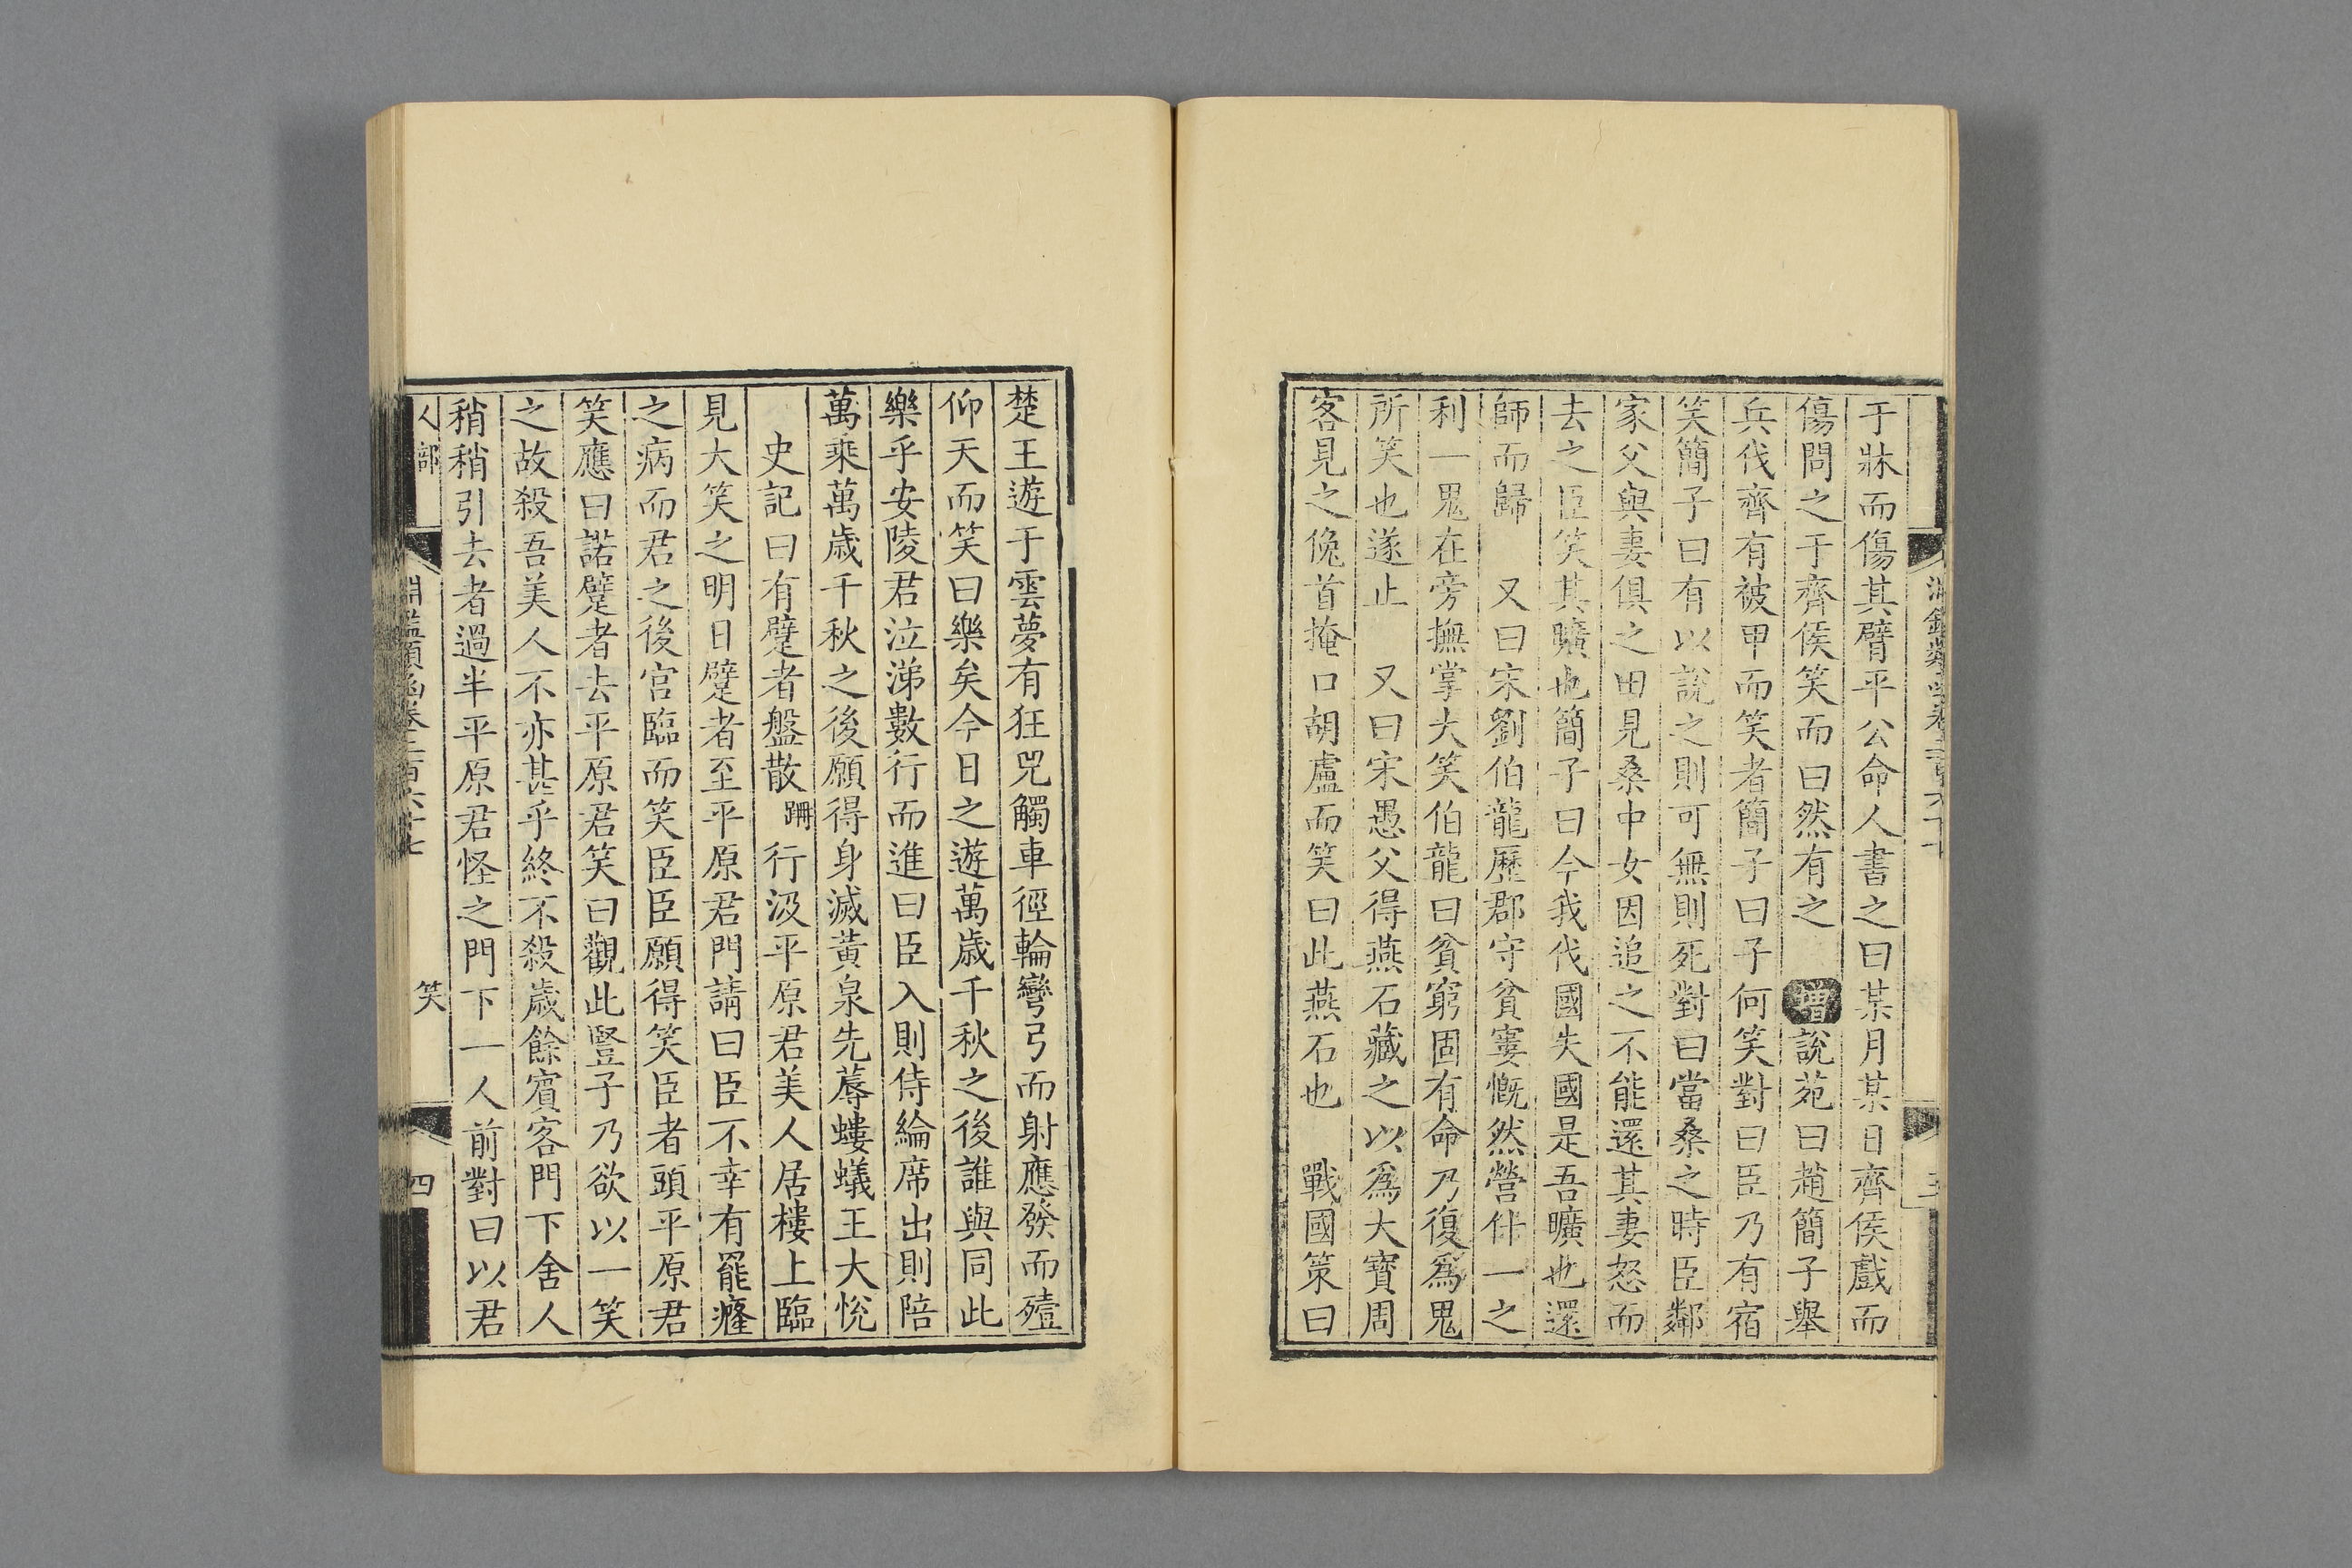 于牀而傷其臂平公命人書之曰某月某日齊侯戲而
傷問之于齊侯笑而曰然有之 增說苑曰趙簡子舉
兵伐齊有被甲而笑者簡子曰子何笑對曰臣乃有宿
笑簡子曰有以說之則可無則死對曰當桑之時臣鄰
家父與妻俱之田見桑中女因追之不能還其妻怒而
去之臣笑其曠也簡子曰今我伐國失國是吾曠也還
師而歸 又曰宋劉伯龍歷郡守貧窶慨然營什一之
利一鬼在旁撫掌大笑伯龍曰貧窮固有命乃復爲鬼
所笑也遂止 又曰宋愚父得燕石藏之以爲大寶周
客見之俛首掩口胡盧而笑曰此燕石也 戰國策曰
楚王遊于雲夢有狂兕觸車徑輪彎弓而射應發而殪
仰天而笑曰樂矣今日之遊萬歲千秋之後誰與同此
樂乎安陵君泣涕數行而進曰臣入則侍綸席出則陪
萬乘萬歲千秋之後願得身滅黃泉先蓐螻蟻王大悅
史記曰有躄者盤散跚行汲平原君美人居樓上臨
見大笑之明日躄者至平原君門請曰臣不幸有罷癃
之病而君之後宮臨而笑臣臣願得笑臣者頭平原君
笑應曰諾躄者去平原君笑曰觀此豎子乃欲以一笑
之故殺吾美人不亦甚乎終不殺歲餘賓客門下舍人
稍稍引去者過半平原君怪之門下一人前對曰以君
人部 淵鑑類函卷二百六十七 笑 四